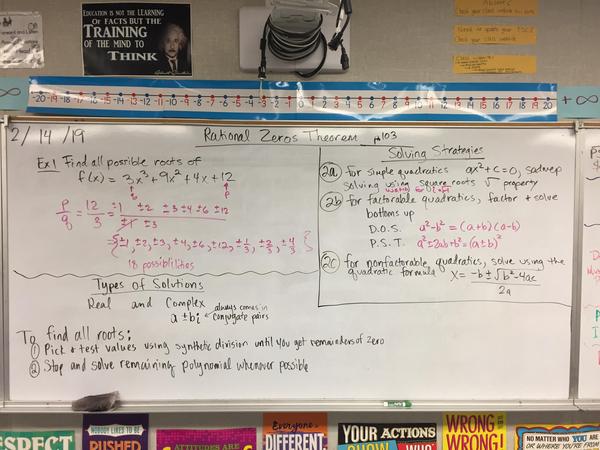 EDUCATION IS NOT THE LEARNING
OF FACTS BUT THE
TRAINING
OF THE MIND TO
THINK
∞ -20 -19 -18 -17 -16 -15 -14 -13 -12 -11 -10 -9 -8 -7 -6 -5 -4 -3 -2 -1 0 1 2 3 4 5 6 7 8 9 10 11 12 13 14 15 16 17 18 19 20 +∞
2/14/19
Rational Zeros Theorem p103
Ex1 Find all possible roots of
f(x) = 3x³+9x²+4x+12
q p
p/q = 12/3 = ±1 ±2 ±3 ±4 ±6 ±12 / ±1 ±3
={±1, ±2, ±3, ±4, ±6, ±12, ±1/3, ±2/3, ±4/3}
18 possibilities
Types of Solutions
Real and Complex
a ± bi
always comes in
conjugate pairs
To find all roots:
① Pick + test values using synthetic division until you get remainders of zero
② Stop and solve remaining polynomial whenever possible
Solving Strategies
2a) for simple quadratics ax²+c=0,
solving using square roots √ property
2b) for factorable quadratics, factor + solve
bottoms up
D.O.S. a²-b² = (a+b)(a-b)
P.S.T. a²±2ab+b² = (a±b)²
2c) for nonfactorable quadratics, solve using the
quadratic formula x = -b±√b²-4ac / 2a
RESPECT
NOBODY LIKES TO BE
PUSHED
ATTITUDES ARE
Everyone
DIFFERENT
YOUR ACTIONS
SHOW
WRONG
WRONG!
NO MATTER WHO YOU ARE
OR WHERE YOU'RE FROM